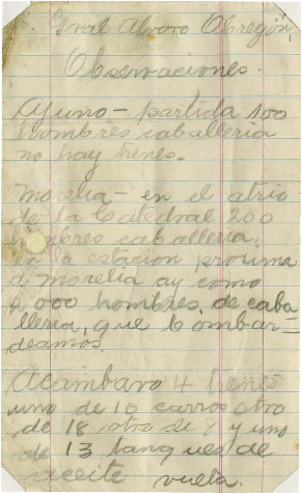 Gral Alvaro Obregón,
Observaciones.
Ayuno - partida 100
hombres caballeria
no hay trenes.
Morelia - en el atrio
de la Catedral 200
hombres caballeria,
en la estacion proxima
d morelia ay como
000 hombres, de caba
lleria, que bombar=
deamos.
Acambaro 4 trenes
uno de 10 carros otro
de 18 otro de 8 y uno
de 13 tanques de
aceite vuelta.